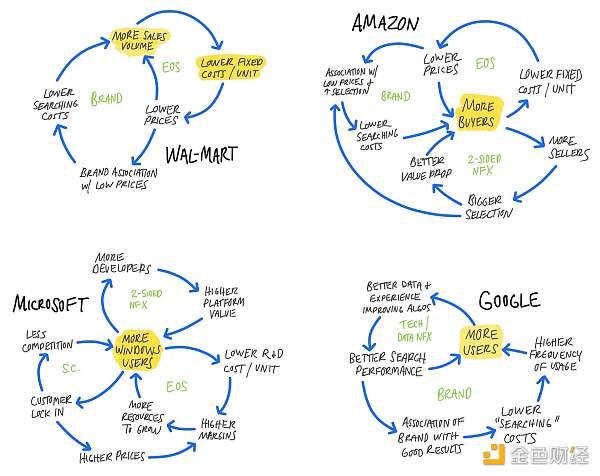 MORE SALES
VOLUME
EOS
LOWER FIXED
COSTS/UNIT
LOWER
SEARCHING
COSTS
BRAND
LOWER
PRICES
WAL-MART
BRAND ASSOCIATION
W/ LOW PRICES
AMAZON
LOWER
PRICES
EOS
ASSOCIATION W/
LOW PRICES +
↑ SELECTION
BRAND
LOWER FIXED
COSTS/UNIT
MORE
BUYERS
LOWER
SEARCHING
COSTS
MORE
SELLERS
BETTER
VALUE PROP
2-SIDED
NFX
BIGGER
SELECTION
MICROSOFT
MORE
DEVELOPERS
2-SIDED
NFX
HIGHER
PLATFORM
VALUE
LESS
COMPETITION
MORE
WINDOWS
USERS
S.C.
LOWER R+D
COST/UNIT
EOS
CUSTOMER
LOCK IN
MORE
RESOURCES
TO GROW
HIGHER
MARGINS
HIGHER PRICES
GOOGLE
BETTER DATA +
EXPERIENCE
IMPROVING ALGOS
TECH/
DATA NFX
MORE
USERS
BETTER SEARCH
PERFORMANCE
HIGHER
FREQUENCY
OF USAGE
BRAND
ASSOCIATION OF
BRAND WITH
GOOD RESULTS
LOWER
"SEARCHING"
COSTS
金色财经